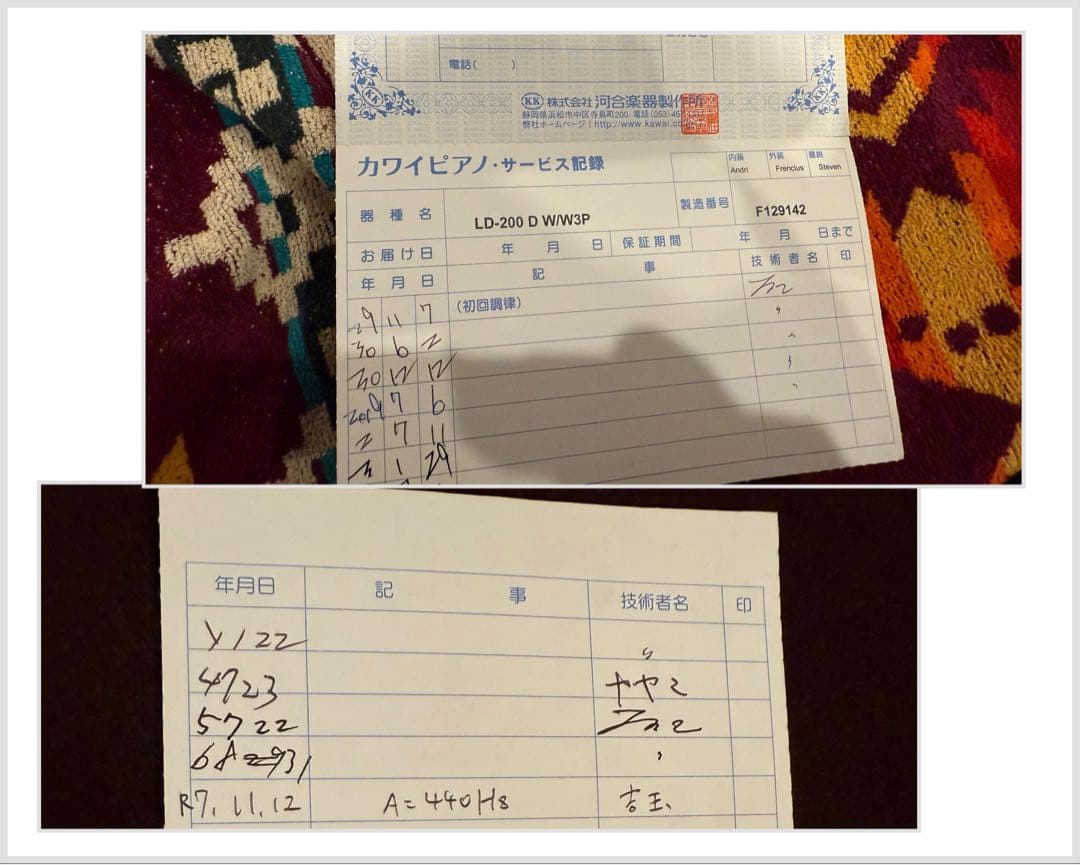 電話( )
株式会社 河合楽器製作所
静岡県浜松市中区寺島町200 電話(053)457
弊社ホームページ〔http://www.kawai.co
カワイピアノ・サービス記録
内装 外装 最終
Andri Frencius Steven
器種名 LD-200 D W/W3P 製造番号 F129142
お届け日 年 月 日 保証期間 年 月 日まで
年 月 日 記 事 技術者名 印
29 11 7 (初回調律)
30 6 2 〃
30 12 12 〃
2019 7 6 〃
2 7 11 〃
3 1 29
年月日 記 事 技術者名 印
4 1 22 〃
4 7 23
5 7 22
6 〃
R7.11.12 A=440Hs